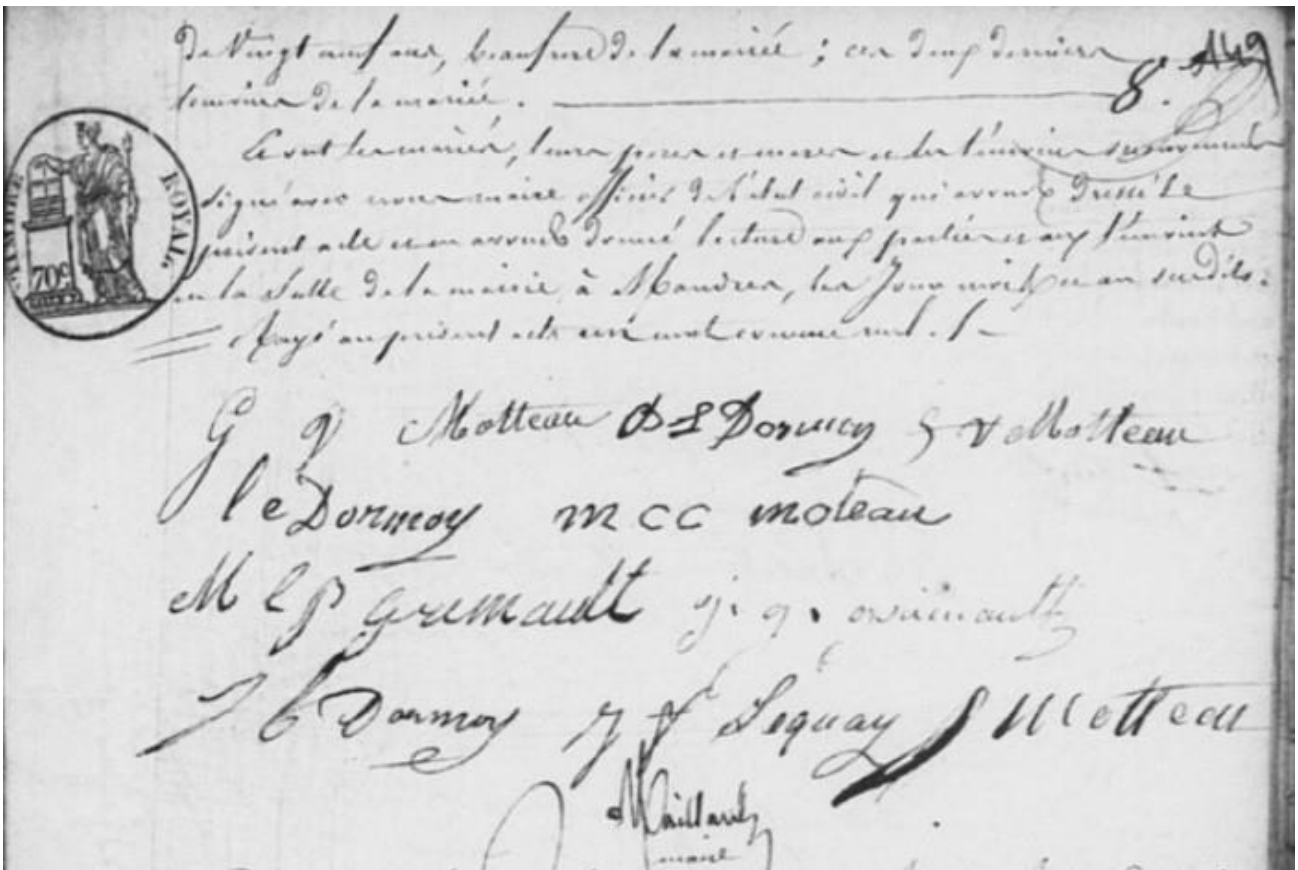 de Vingt neuf ans, beaufrere de la mariée ; ces deux derniers
temoins de la mariée. 8. 149
Et ont les mariés, leurs peres et meres et les témoins susnommés
signé avec nous maire officier de l'état civil qui avons dressé le
présent acte et en avons donné lecture aux parties et aux témoins
en la Salle de la mairie, à Mandres, les Jour mois et an susdits.
Rayé au présent acte un mot comme nul.
TIMBRE ROYAL
70c
G g Motteau D L Dormoy S V Motteau
l e Dormoy m c c moteau
M l P Gremault j. g.
J b Dormoy J f Lequay Motteau
Maillard
maire